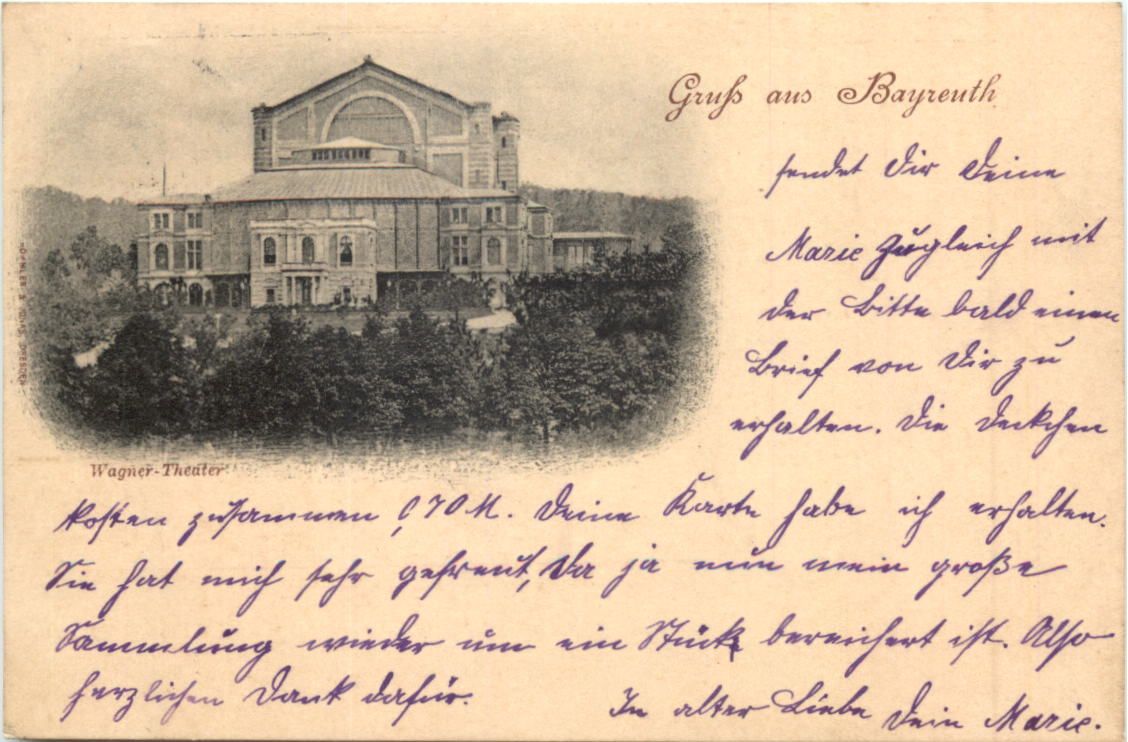 Gruß aus Bayreuth
sendet Dir Deine
Marie zugleich mit
der Bitte bald einen
Brief von Dir zu
erhalten. Die Deckchen
Wagner-Theater
kosten zusammen 0,70 M. Deine Karte habe ich erhalten.
Sie hat mich sehr gefreut, da ja nun mein große
Sammlung wieder um ein Stück bereichert ist. Also
herzlichen Dank dafür.
In alter Liebe Dein Marie.